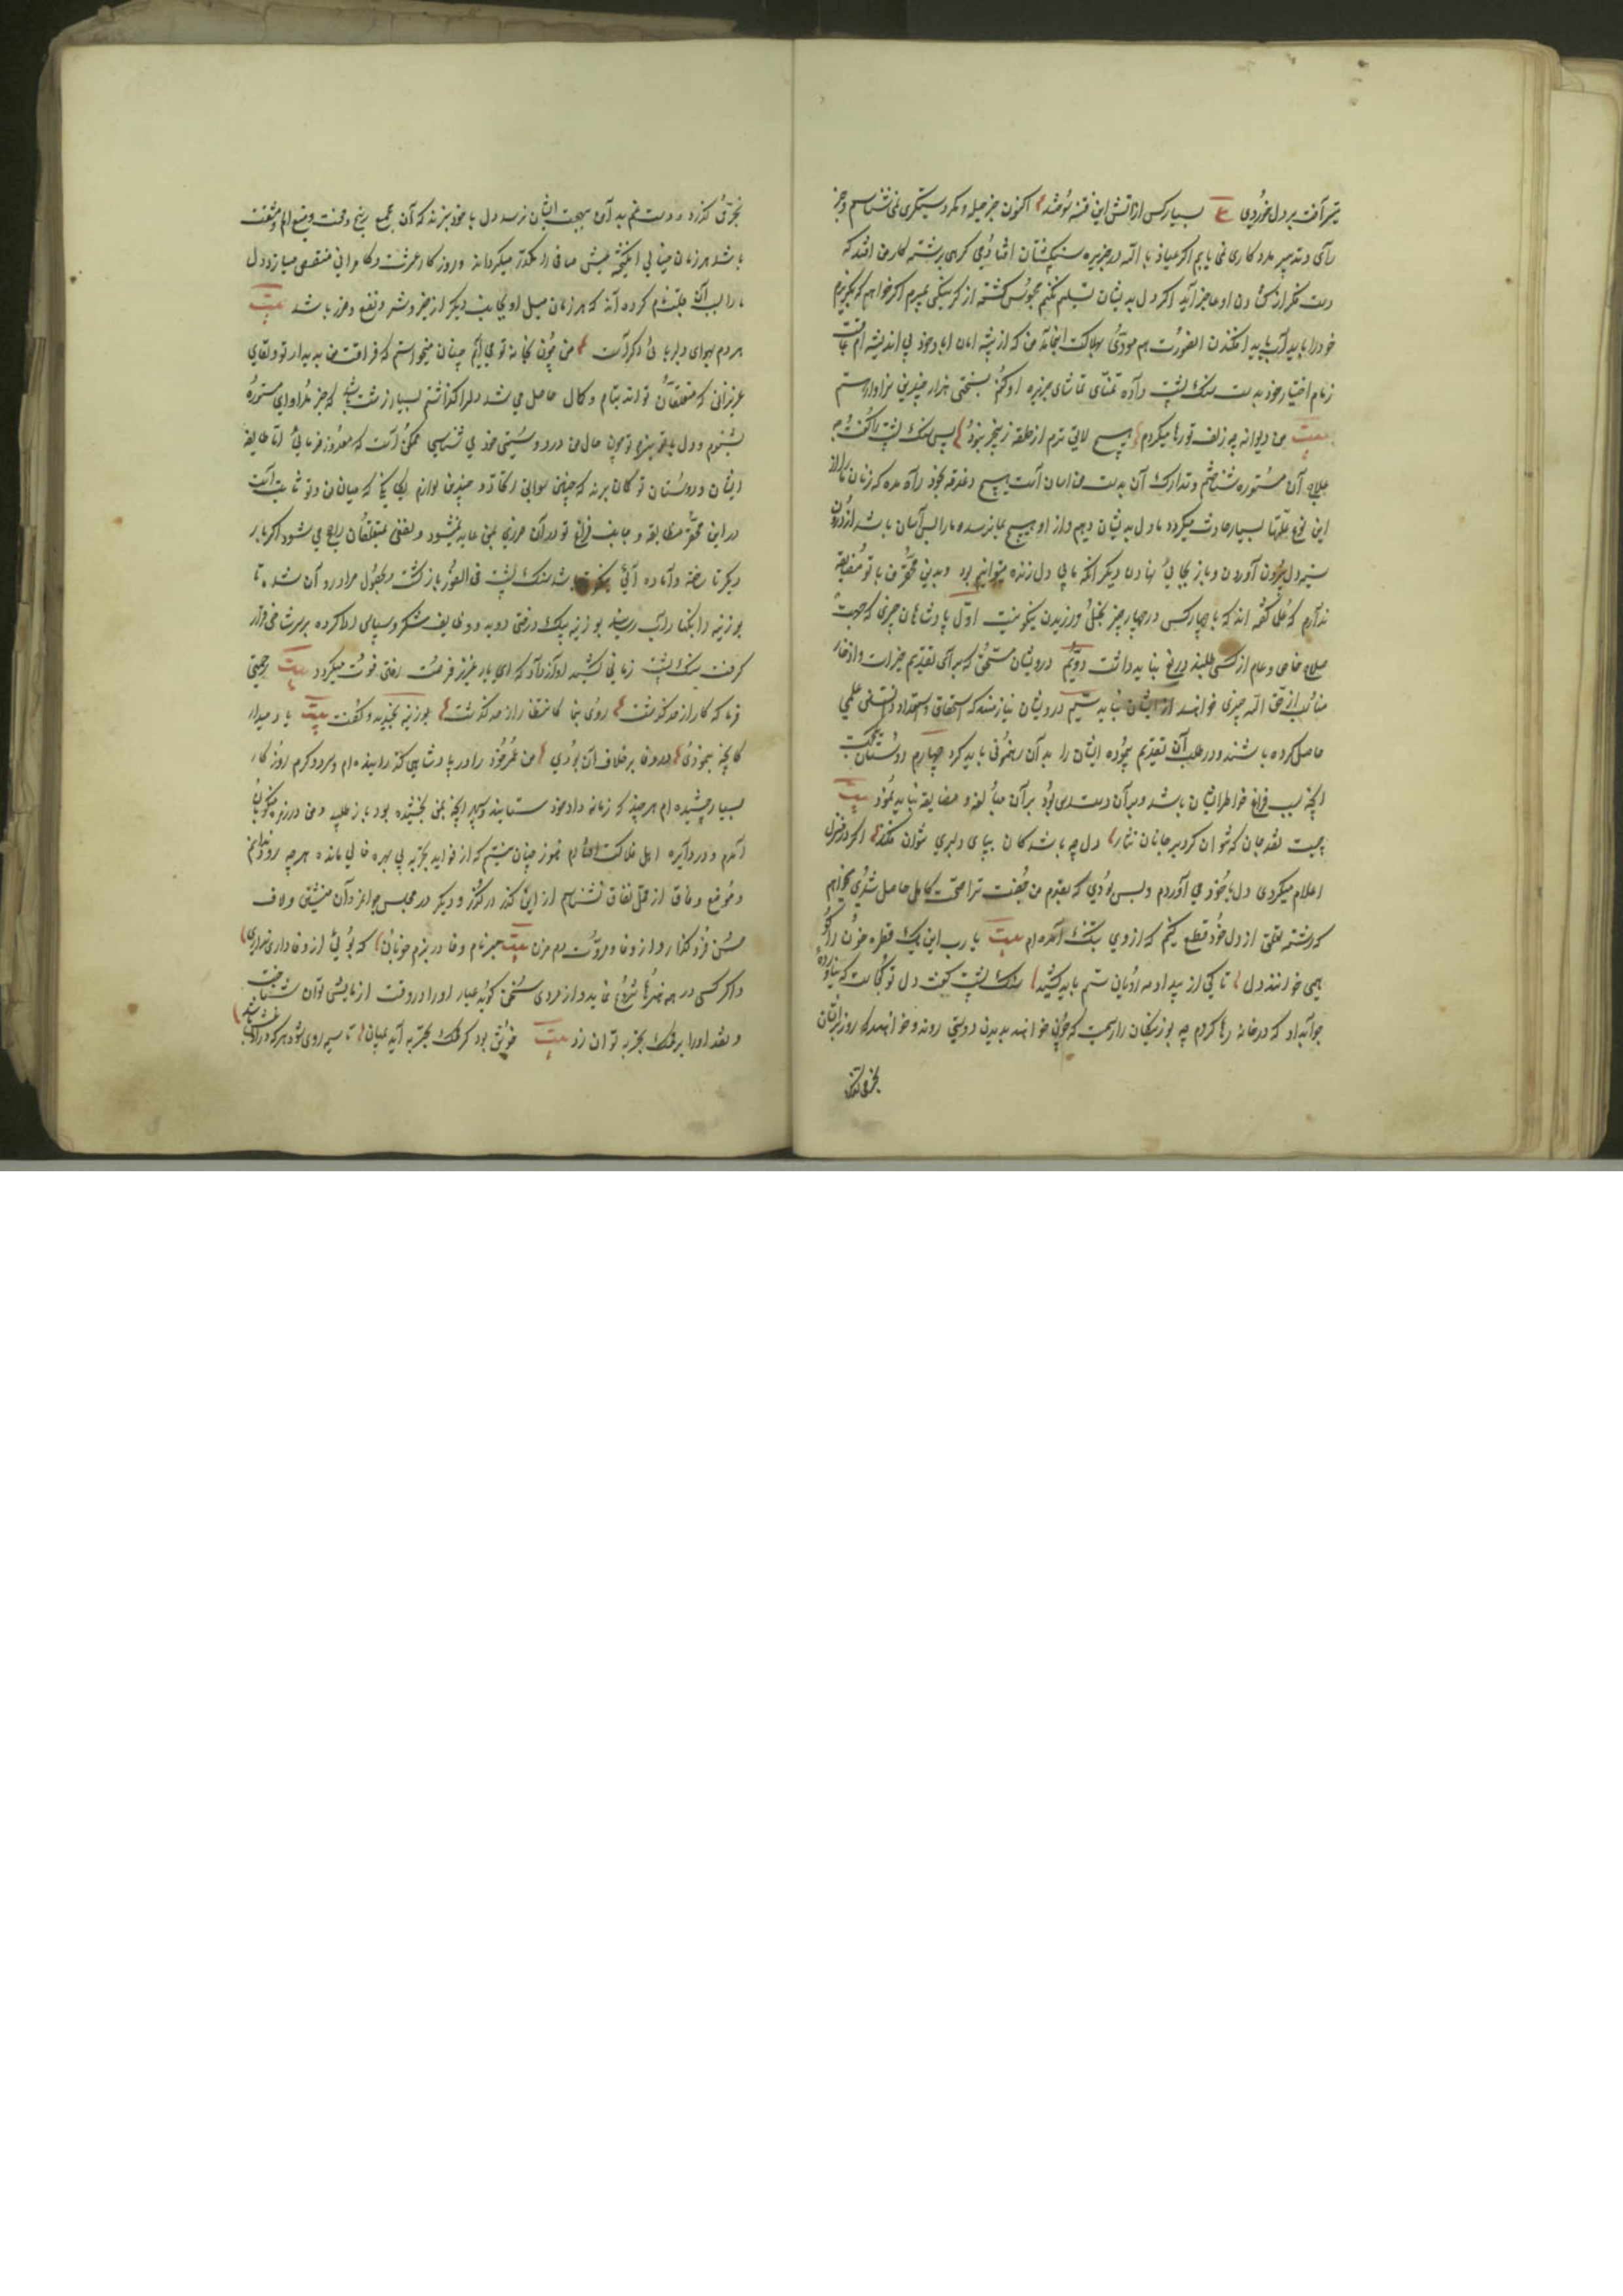 تیر آفت بر دل خوردی ع بسیار کس از آتش این فتنه سوختند اکنون جز حیله و مکر دستگیری نمی شناسم و جز
رای و تدبیر مددکاری نمی یابم اگر عیاذ بالله در جزیره سنگ پشتان افتادمی گرهی بر رشته کار من افتد که
دست فکر از گشادن او عاجز آید اگر دل بدیشان تسلیم نکنم محبوس گشته از گرسنگی بمیرم اگر خواهم که بگریزم
خود را باید در آب باید افکندن الصورت هم مودی بهلاکت انجامد من که از بیشه امان
زمام اختیار خود بدست سنگ پشت داده تمنای تماشای جزیره او کنم بسختی هزار چندین سزاوارستم
بیت من دیوانه چو زلف تو رها میکردم هیچ لایق ترم از حلقه زنجیر نبود پس سنگ پشت را گفت
علاج آن مستوره شناختم و تدارک آن بدست من آسان است هیچ دغدغه بخود راه مده که زنان ما را از
این نوع علتها بسیار حادث میگردد ما دل بدیشان دهیم و از او هیچ بما نرسد و ما را بس آسان باشد از درون
سینه دل بیرون آوردن و باز بجای نهادن دیگر آنکه ما بی دل زنده میتوانیم بود و بدین محقر من با تو مضایقه
ندارم که علما گفته اند که با چهار کس در چهار چیز بخل ورزیدن نیکو نیست اول پادشاهان چیزی که جهت
صلاح خاص و عام از کسی طلبند دریغ نباید داشت دویم درویشان مستحق که برای تقدیم خیرات و ادخار
مثوبات از حق الله چیزی خواهند از ایشان نباید سیم درویشان نیازمند که استحقاق و استعداد دانستنی علمی
حاصل کرده باشند و در طلب آن تقدیم نموده ایشان را بدان رهنمونی باید کرد چهارم دوستان یکجهت
آنچه سبب فراغ خاطر ایشان باشد و بر آن دسترس بود بر آن مبالغه و مضایقه نباید نمود بیت
چیست نقد جان که نتوان کرد بر جانان نثار دل چه باشد کان بپای دلبری نتوان فکند اگر در منزل
اعلام میکردی دل با خود می آوردم و بس بودی که بقدم من جفت ترا صحت کامل حاصل شدی میخواهم
که رشته تعلق از دل خود قطع کنم که از وی بتنگ آمده ام بیت یا رب این یک قطره خون را کو
همی خوانند دل تا کی از بیداد مه رویان ستم باید کشید سنگ پشت گفت دل تو کجاست که نیاورده
جواب داد که در خانه رها کردم چه بوزینگان را رسمست که چون خواهند بدیدن دوستی روند و خواهند که روز بر ایشان
بخرمی گذرد
بخرمی گذرد و دست غم بدامن بهجت ایشان نرسد دل با خود نبرند که آن مجمع رنج و محنت و منبع الم و مشقت
باشد هر زمان خیالی انگیخته عیش صافی را مکدر میگرداند و روزگار عشرت و کامرانی منغص میسازد و دل
ما را بسبب آن ملتزم کرده اند که هر زمان میل او بجانب دیگر از خیر و شر و نفع و ضرر باشد بیت
هر دم بهوای دلربائی دگر است من چون بخانه تو می آیم چنان میخواستم که فراغت من بدیدار تو و لقای
عزیزانی که متعلقان تواند بتمام و کمال حاصل می شد دل را گذاشتم بسیار زشت باشد که خبر مداوای مستوره
بشنوم و دل با خود نبرم تو چون حال من در دوستی خود می شناسی ممکن است که معذور فرمائی اما طایفه
ایشان و دوستان تو گمان برند که چنین سوابق اتحاد و چندین لوازم یگانگی که میان من و تو ثابت است
در این محقر مضایقه و جانب فراغ تو در آن ضرری بمن عاید نمیشود و نفعی بمتعلقان راجع می شود اگر بار
دیگر تا رخنه و آماده آئی نیکو تر باشد سنگ پشت فی الفور باز گشت و بحصول مراد روان شد تا
بوزینه را بکنار آب رسانید بوزینه بیک درختی دوید و وظایف شکر و سپاس ادا کرده بر سر شاخی قرار
گرفت سنگ پشت زمانی کشید آواز داد که ای یار عزیز فرصت رفتن فوت میگردد بیت رحمتی
فرما که کار از حد گذشت روی بنما کانتظار از حد گذشت بوزینه بخندید و گفت بیت یاد میدار
کانچه بنمودی در وفا بر خلاف آن بودی من عمر خود را در پادشاهی گذرانیده ام و سرد و گرم روزگار
بسیار چشیده ام هر چند که زمانه داد خود ستانید و سپهر آنچه بمن بخشیده بود باز طلبید و من در زمره منکوبان
آمدم و در دایره اهل فلاکت افتادم هنوز چنان نیستم که از فواید تجربه بی بهره خالی مانده هر چه رو دانم
و موضع وفاق از محل نفاق نشناسم از این گذر درگذر و دیگر در مجلس جوانمردان منشین و لاف
حسن فرو گذار و از وفا و مروت دم مزن بیت مبر نام وفا در بزم خوبان که بوئی از وفاداری نداری
و اگر کسی در همه هنرها شروع نماید و از مردی سخن گوید عیار او را در وقت آزمایش توان شناخت
و نقد او را بر محک تجربه توان زد بیت خوش بود گر محک تجربه آید بمیان تا سیه روی شود هر که در او غش باشد